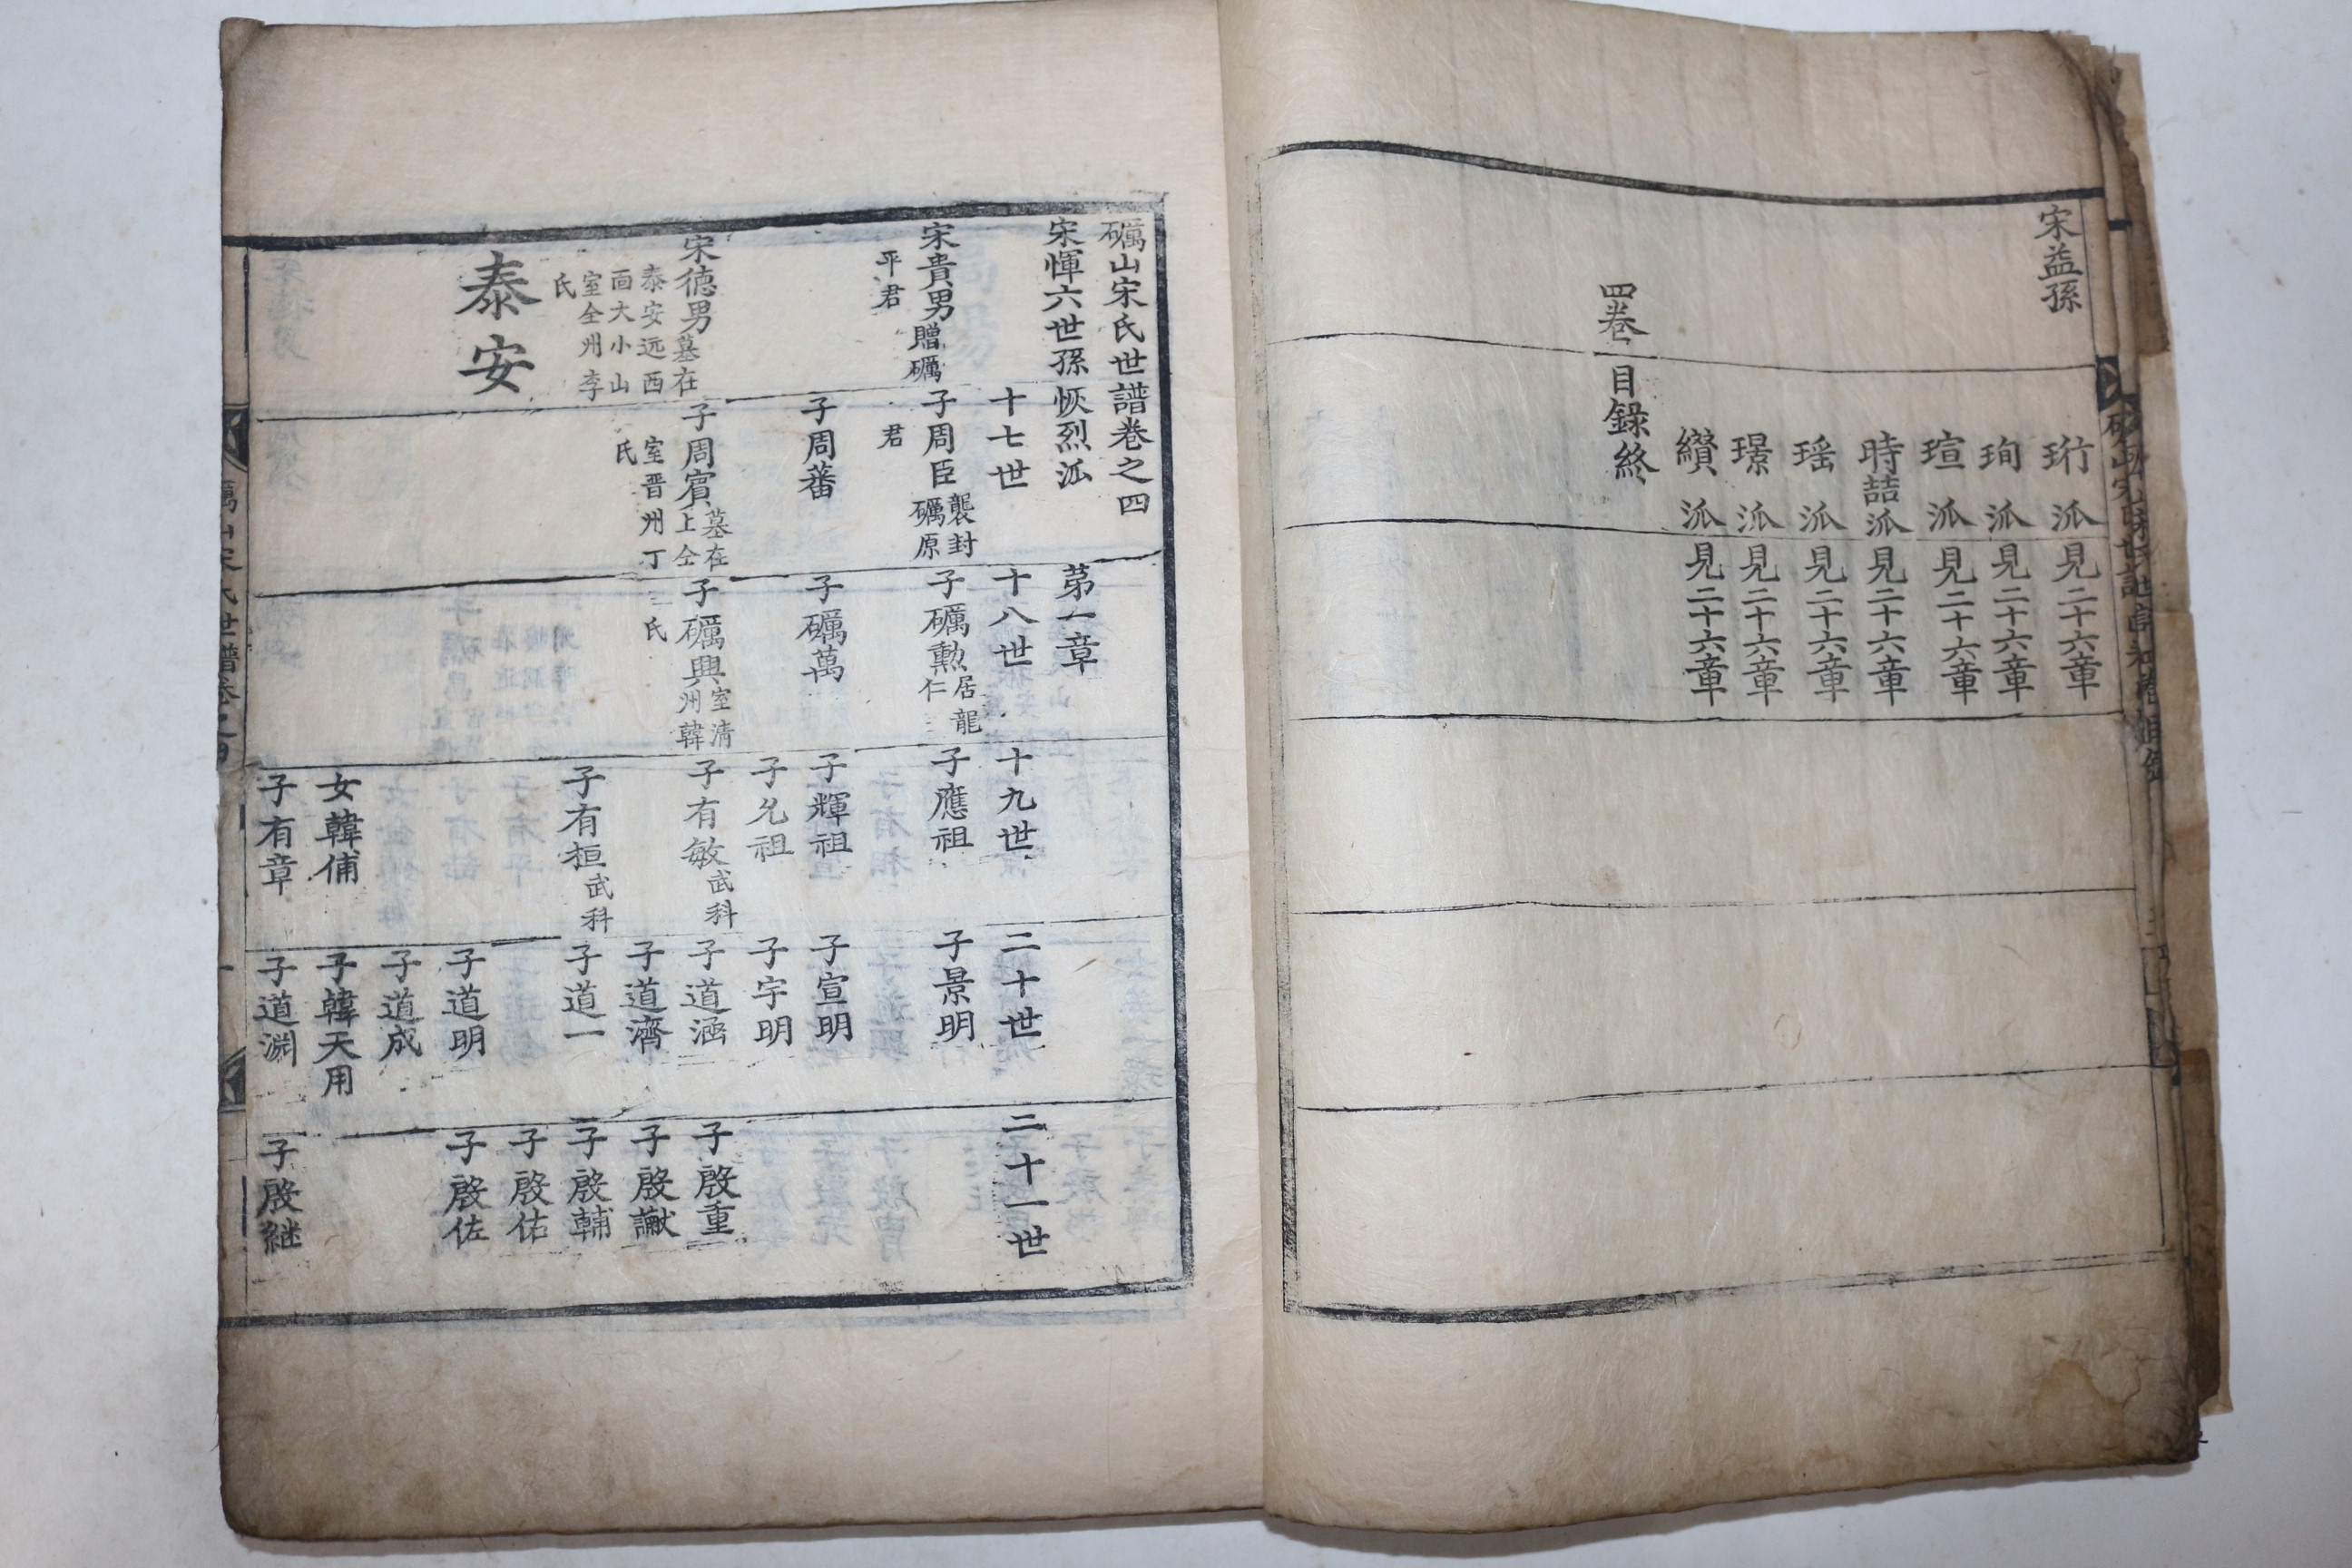 宋益孫
珩派見二十六章
珣派見二十六章
瑄派見二十六章
時喆派見二十六章
瑶派見二十六章
璟派見二十六章
纘派見二十六章
四卷目錄終
礪山宋氏世譜卷之四
宋惲六世孫恢烈派
第一章
十七世
十八世
十九世
二十世
二十一世
宋貴男贈礪
平君
子周臣襲封
礪原
君
子礪勲居龍
仁
子應祖
子景明
子周蕃
子礪萬
子輝祖
子宣明
子允祖
子宇明
宋德男墓在
泰安远西
面大小山
室全州李
氏
子周賓墓在
上仝
室晋州丁
氏
子礪興室清
州韓
氏
子有敏武科
子道涵
子啟重
子道濟
子啟讞
子有桓武科
子道一
子啟輔
子啟佑
泰安
子道明
子啟佐
子道成
女韓俌
子韓天用
子有章
子道淵
子啟継
礪山宋氏世譜卷之四